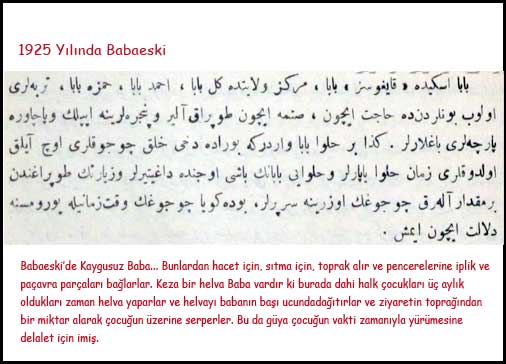 1925 Yılında Babaeski
بابا اسکیده « قایغوسز » بابا ، مرکز ولایتده کل بابا ، احمد بابا ، حمزه بابا ، تربه‌لری
اولوب بونلردن‌ده حاجت ایچون ، صتمه ایچون طوپراق آلیر وپنجره‌لرینه ایپلك وپاچاوره
پارچه‌لری باغلارلر . کذا بر حلوا بابا واردرکه بوراده دخی خلق چوجوقلری اوچ آیلق
اولدوقلری زمان حلوا یاپارلر وحلوایی بابانك باشی اوجنده داغیتیرلر وزیارتك طوپراغندن
برمقدار آله‌رق چوجوغك اوزرینه سرپرلر ، بوده‌کویا چوجوغك وقت‌زمانیله یورومسنه
دلالت ایچون ایمش .
Babaeski'de Kaygusuz Baba... Bunlardan hacet için, sıtma için, toprak alır ve pencerelerine iplik ve
paçavra parçaları bağlarlar. Keza bir helva Baba vardır ki burada dahi halk çocukları üç aylık
oldukları zaman helva yaparlar ve helvayı babanın başı ucundadağıtırlar ve ziyaretin toprağından
bir miktar alarak çocuğun üzerine serperler. Bu da güya çocuğun vakti zamanıyla yürümesine
delalet için imiş.